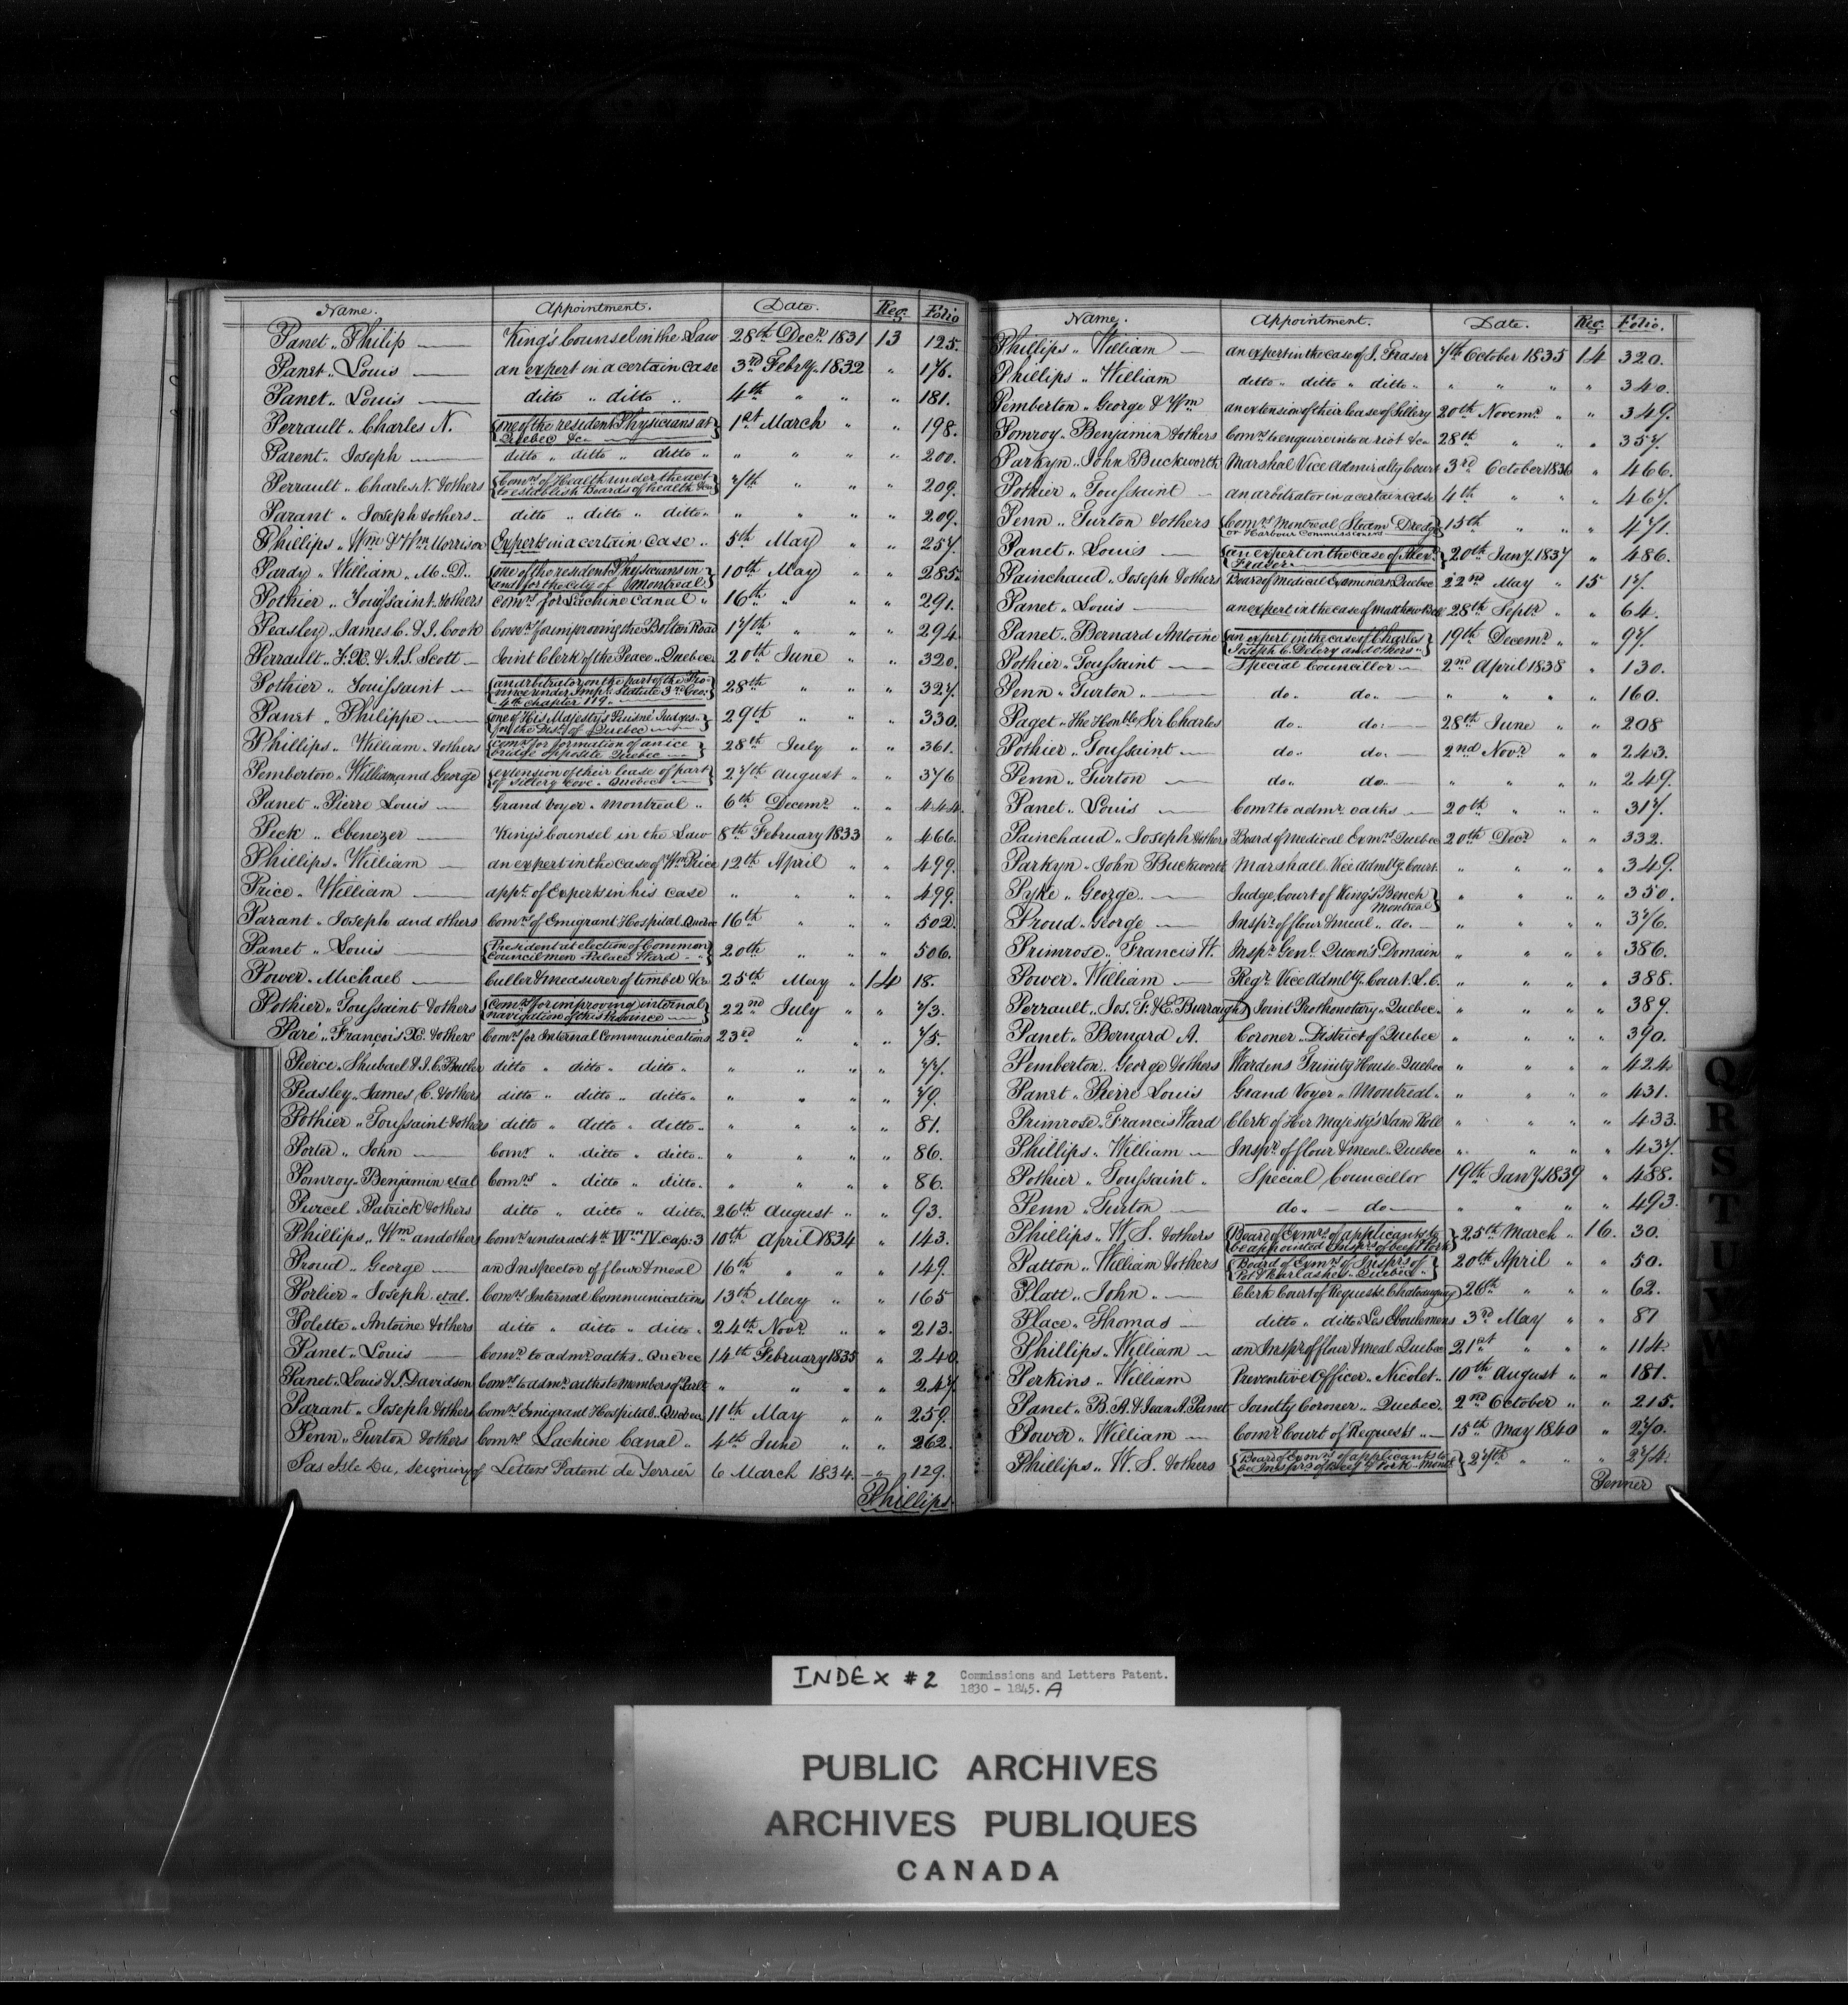 Name. Appointment. Date. Reg. Folio
Panet „ Philip — King's Counsel in the Law 28th Decr. 1831 13 125.
Panet „ Louis — an expert in a certain case 3rd Feby. 1832 „ 176.
Panet „ Louis — ditto „ ditto „ 4th „ „ „ 181.
Perrault „ Charles N. {one of the resident Physicians at Quebec &c.} 1st March „ „ 198.
Parent „ Joseph — ditto „ ditto „ ditto „ „ „ „ „ 200.
Perrault „ Charles N. & others {Comrs. of Health under the act to establish Boards of health &c.} 7th „ „ „ 209.
Parant „ Joseph & others — ditto „ ditto „ ditto „ „ „ „ „ 209.
Phillips „ Wm. & Wm. Morrison Experts in a certain case „ 5th May „ „ 257.
Pardy „ William „ M. D. {one of the resident Physicians in and for the City of Montreal} 10th May „ „ 285.
Pothier „ Toussaint & others Comrs. for Lachine Canal „ 16th „ „ „ 291.
Peasley „ James C. & J. Cook Comrs. for improoving the Bolton Road 17th „ „ „ 294
Perrault „ F. X. & A. S. Scott — Joint Clerk of the Peace „ Quebec 20th June „ „ 320.
Pothier „ Touissaint — {an arbitrator on the part of the Province under Impl. Statute 3rd Geo: 4th chapter 119.} 28th „ „ „ 327.
Panet „ Philippe — {one of His Majesty's Puisné Judges for the Dist. of Quebec} 29th „ „ „ 330.
Phillips „ William & others {Comrs. for formation of an ice bridge opposite Quebec} 28th July „ „ 361.
Pemberton „ William and George {extension of their lease of part of Sillery Cove „ Quebec} 27th August „ „ 376
Panet „ Pierre Louis — Grand Voyer „ Montreal „ 6th Decemr. „ „ 444.
Peck „ Ebenezer — King's Counsel in the Law 8th February 1833 „ 466.
Phillips „ William — an expert in the case of Wm. Price 12th April „ „ 499.
Price „ William — appt. of Experts in his case „ „ „ „ 499.
Parant „ Joseph and others Comrs. of Emigrant Hospital Quebec 16th „ „ „ 502.
Panet „ Louis — {President at election of Common Councilmen Palace Ward} 20th „ „ „ 506.
Power „ Michael — Culler & measurer of timber &c. 25th May „ 14 18.
Pothier „ Toussaint & others {Comrs. for improving internal navigation of this Province} 22nd July „ „ 73.
Paré „ François X. & others Comrs. for Internal Communications 23rd „ „ „ 75.
Pierce „ Shubael & J. C. Butler ditto „ ditto „ ditto „ „ „ „ „ 77.
Peasley „ James C. & others ditto „ ditto „ ditto „ „ „ „ „ 79.
Pothier „ Toussaint & others ditto „ ditto „ ditto „ „ „ „ „ 81.
Porter „ John — Comr. „ ditto „ ditto „ „ „ „ „ 86.
Pomroy „ Benjamin et al Comrs. „ ditto „ ditto „ „ „ „ „ 86.
Purcel „ Patrick & others ditto „ ditto „ ditto „ 26th August „ „ 93.
Phillips „ Wm. and others Comrs. under act 4th Wm. IV. cap: 3 10th April 1834 „ 143.
Proud „ George — an Inspector of flour & meal 16th „ „ „ 149.
Porlier „ Joseph et al. Comrs. Internal Communications 13th May „ „ 165
Polette „ Antoine & others ditto „ ditto „ ditto „ 24th Novr. „ „ 213.
Panet „ Louis — Comr. to admr. oaths „ Quebec 14th February 1835 „ 240.
Panet „ Louis & J. Davidson Comrs. to admr. oaths to members of Parlt. „ „ „ „ 247.
Parant „ Joseph & others Comrs. Emigrant Hospital „ Quebec 11th May „ „ 259.
Penn „ Turton & others Comrs. Lachine Canal „ 4th June „ „ 262.
Pas Isle Du, Seigniory of Letters Patent de Terrier 6 March 1834 — „ — 129.
Phillips.
Name. Appointment. Date. Reg. Folio.
Phillips „ William — an expert in the case of J. Fraser 7th October 1835 14 320.
Phillips „ William ditto „ ditto „ ditto „ „ „ „ „ 340.
Pemberton „ George & Wm. an extension of their lease of Sillery 20th Novemr. „ „ 349.
Pomroy „ Benjamin & others Comrs. to enquire into a riot &c. 28th „ „ „ 357.
Parkyn „ John Buckworth Marshal Vice Admiralty Court 3rd October 1836 „ 466.
Pothier „ Toussaint — an arbitrator in a certain case 4th „ „ „ 467.
Penn „ Turton & others {Comrs. Montreal Steam Dredge or Harbour Commissioners} 15th „ „ „ 471.
Panet „ Louis — {an expert in the case of Alexr. Fraser} 20th Jany. 1837 „ 486.
Painchaud „ Joseph & others Board of Medical Examiners Quebec 22nd May „ 15 17.
Panet „ Louis — an expert in the case of Matthew Bell 28th Septr. „ „ 64.
Panet „ Bernard Antoine {an expert in the case of Charles Joseph C. Delery and others} 19th Decemr. „ „ 97.
Pothier „ Toussaint — Special Councillor — 2nd April 1838 „ 130.
Penn „ Turton „ — do. do. — „ „ „ „ 160.
Paget „ The Honble. Sir Charles do. do. — 28th June „ „ 208
Pothier „ Toussaint — do. do. 2nd Novr. „ „ 243.
Penn „ Turton — do. do. „ „ „ „ 249.
Panet „ Louis — Comr. to admr. oaths — 20th „ „ „ 317.
Painchaud „ Joseph & others Board of Medical Exmrs. Quebec 20th Decr. „ „ 332.
Parkyn „ John Buckworth Marshall Vice Admlty. Court „ „ „ „ 349.
Pyke „ George — Judge Court of King's Bench Montreal} „ „ „ „ 350.
Proud „ George — Inspr. of flour & meal „ do. — „ „ „ „ 376.
Primrose „ Francis W. Inspr. Genl. Queen's Domain „ „ „ „ 386.
Power „ William — Regr. Vice Admlty. Court L. C. „ „ „ „ 388.
Perrault, Jos. F. & E. Burroughs Joint Prothonotary „ Quebec „ „ „ „ 389.
Panet „ Bernard A. Coroner „ District of Quebec „ „ „ „ 390.
Pemberton „ George & others Wardens Trinity House Quebec „ „ „ „ 424.
Panet „ Pierre Louis Grand Voyer „ Montreal „ „ „ „ „ 431.
Primrose „ Francis Ward Clerk of Her Majesty's Land Roll „ „ „ „ 433.
Phillips „ William — Inspr. of flour & meal „ Quebec „ „ „ „ 437.
Pothier „ Toussaint „ Special Councillor 19th Jany. 1839 „ 488.
Penn „ Turton — do. — do. — „ „ „ „ 493.
Phillips „ W. S. & others {Board of Exmrs. of applicants to be appointed Insprs. of beef & Pork} 25th March „ 16. 30.
Patton „ William & others {Board of Exmrs. of Insprs. of Pot & Pearl ashes „ Quebec} 20th April „ „ 50.
Platt „ John „ — Clerk Court of Requests Chateauguay 26th „ „ „ 62.
Place „ Thomas — ditto „ ditto Les Eboulemens 3rd May „ „ 87
Phillips „ William — an Inspr. of flour & meal Quebec 21st „ „ „ 114.
Perkins „ William Preventive Officer „ Nicolet „ 10th August „ „ 181.
Panet „ B. A. & Jean A. Panet Jointly Coroner „ Quebec 2nd October „ „ 215.
Power „ William — Comr. Court of Requests „ — 15th May 1840 „ 270.
Phillips „ W. S. & others {Board of Exmrs. of applicants to be Insprs. of Beef & Pork „ Montl.} 27th „ „ „ 274.
Penner
Q
R
S
T
U
V
W
INDEX #2 Commissions and Letters Patent.
1830 - 1845. A
PUBLIC ARCHIVES
ARCHIVES PUBLIQUES
CANADA